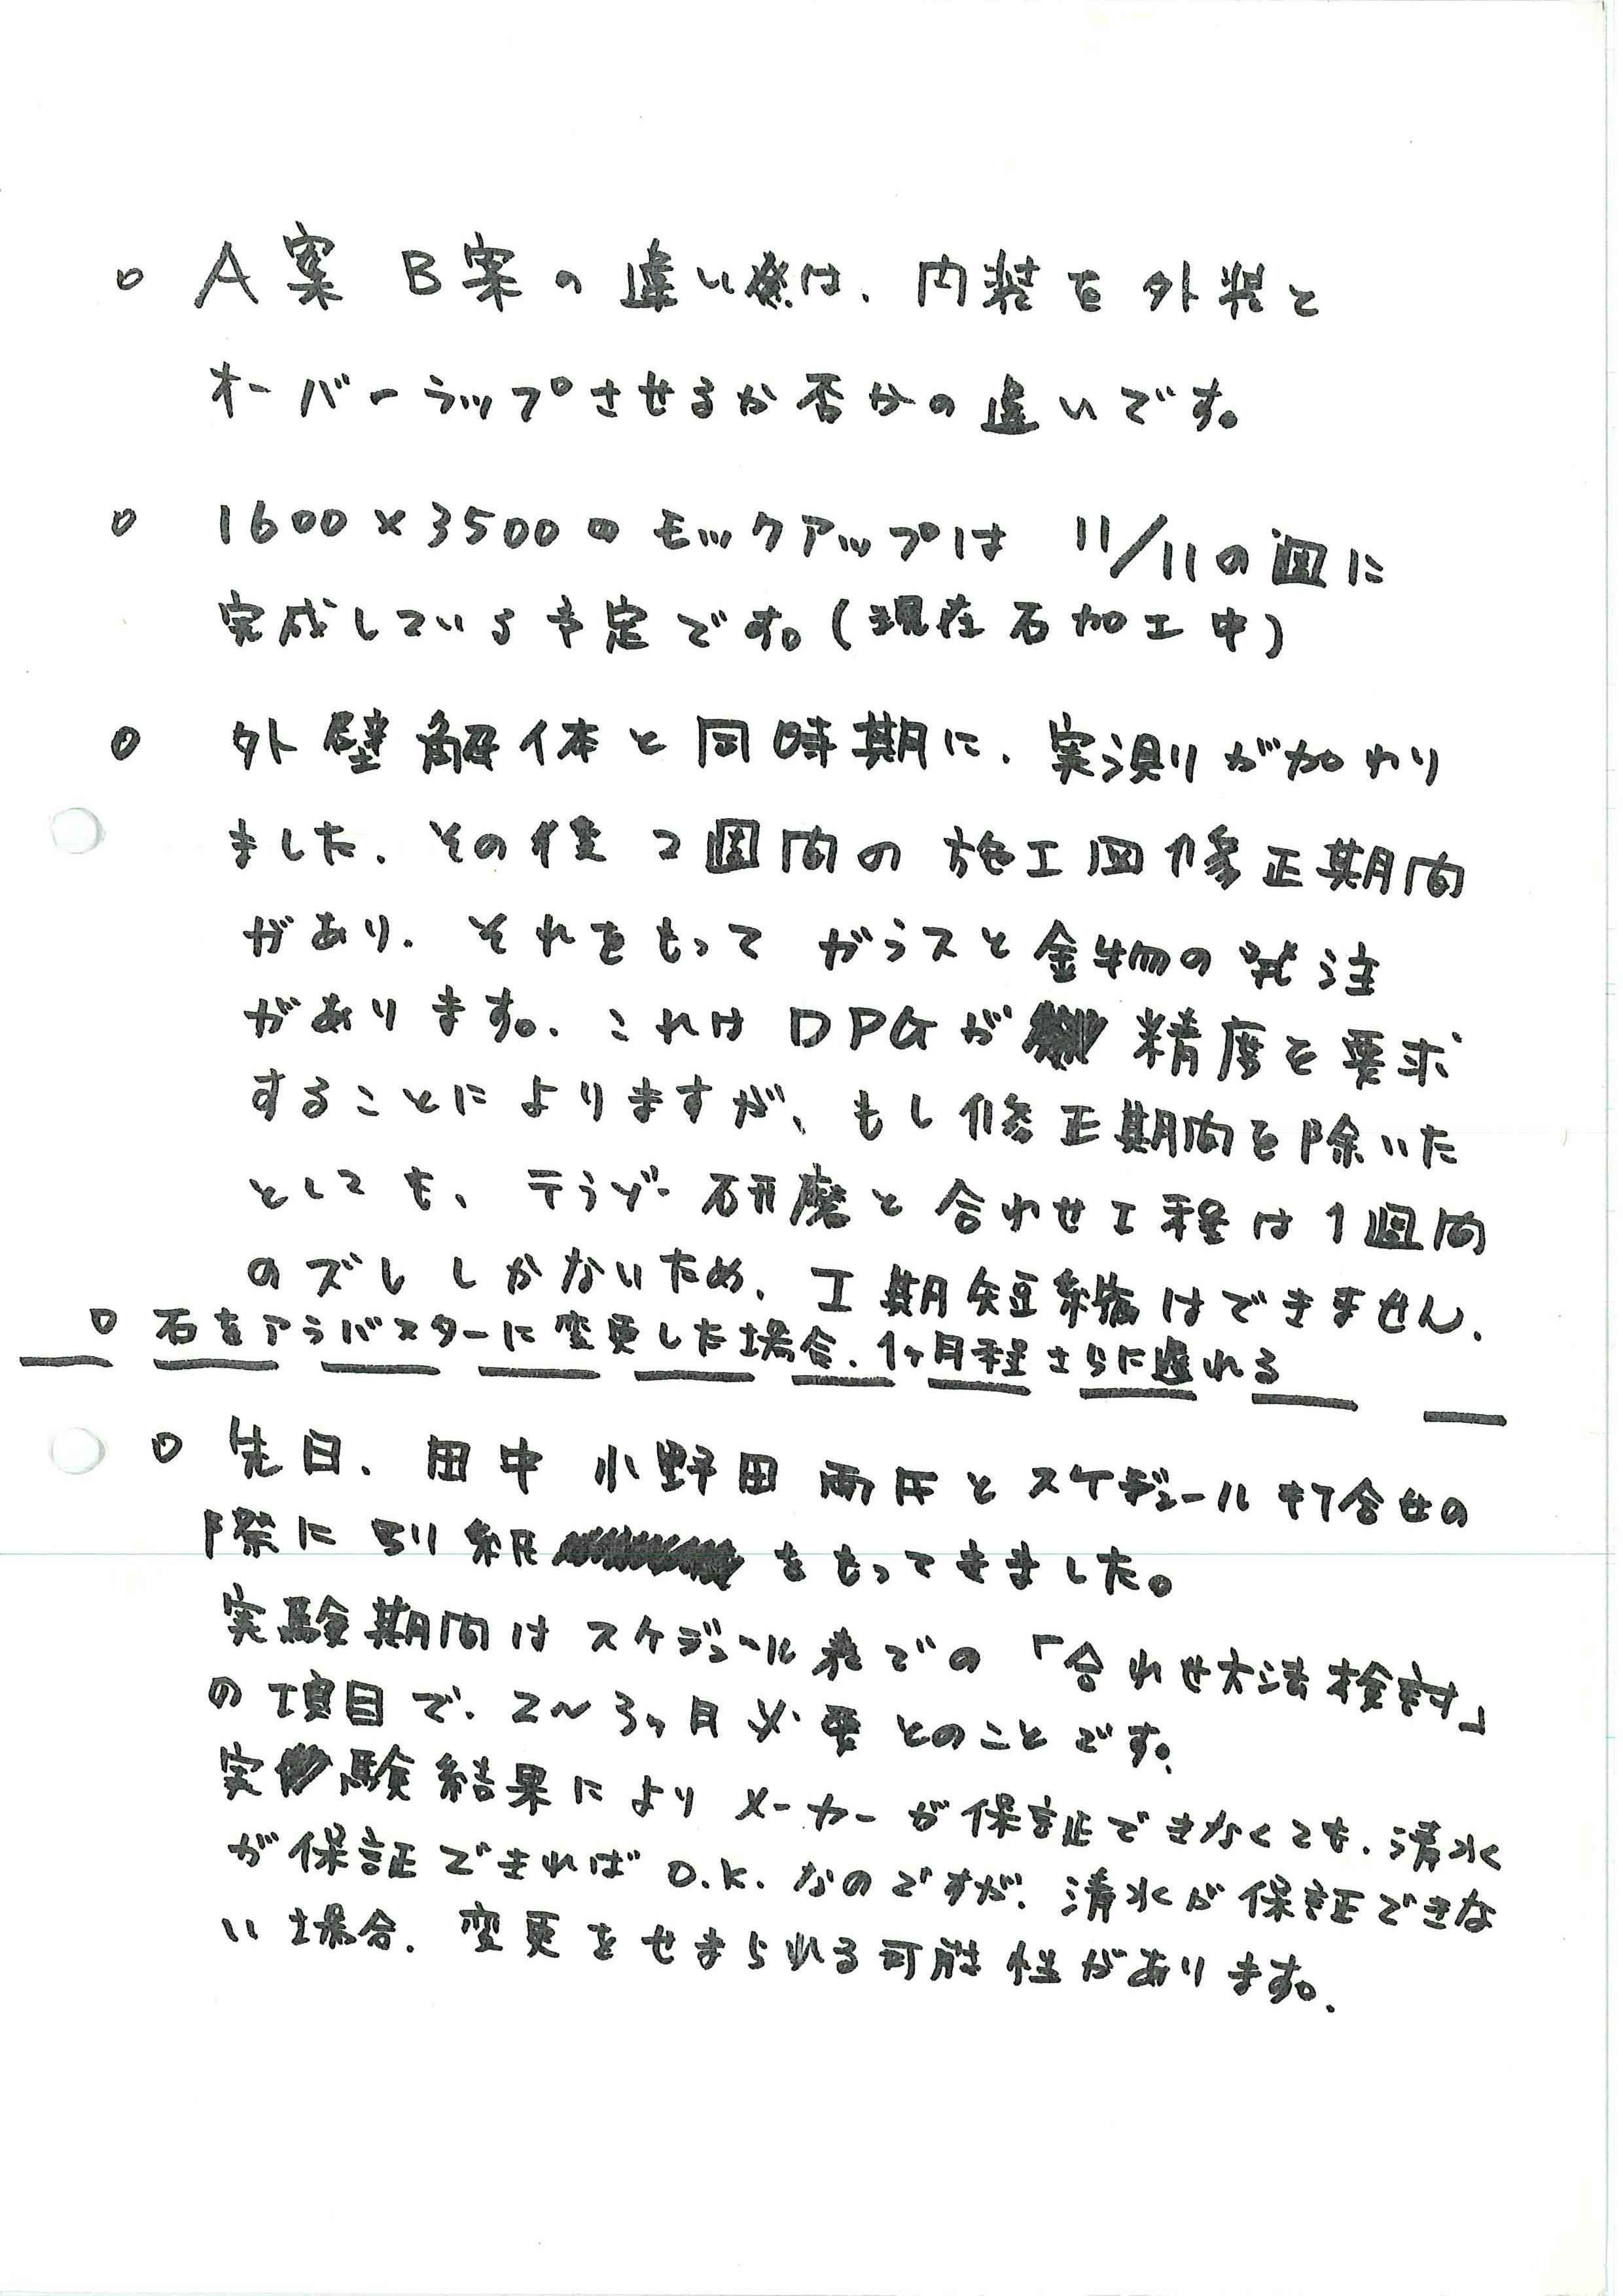 ○ A案 B案の違いは、内装を外装と
オーバーラップさせるか否かの違いです。
○ 1600×3500のモックアップは 11/11の週に
完成している予定です。(現在石加工中)
○ 外壁解体と同時期に、実測が加わり
ました。その後2週間の施工図修正期間
があり、それをもってガラスと金物の発注
があります。これはDPGが精度を要求
することによりますが、もし修正期間を除いた
としても、テラゾー研磨と合わせ工程は1週間
のズレしかないため、工期短縮はできません。
○ 石をアラバスターに変更した場合、1ヶ月程さらに遅れる
○ 先日、田中 小野田 両氏とスケジュール打合せの
際に別紙をもってきました。
実験期間はスケジュール表での「合わせ方法検討」
の項目で、2〜3ヶ月必要とのことです。
実験結果によりメーカーが保証できなくても、清水
が保証できればO.K.なのですが、清水が保証できな
い場合、変更をせまられる可能性があります。